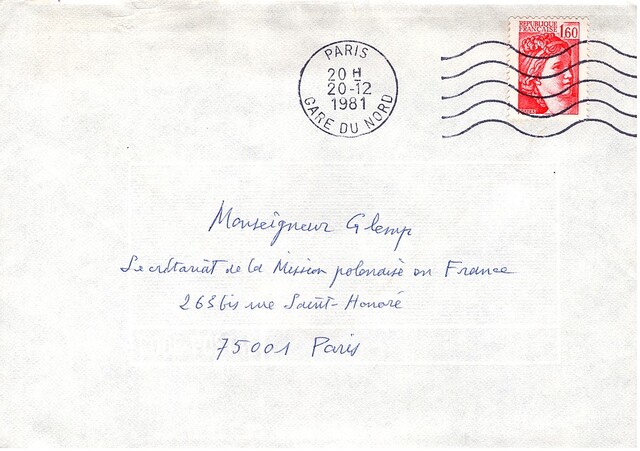 PARIS
20 H
20-12
1981
GARE DU NORD
REPUBLIQUE
FRANÇAISE 1,60
Monseigneur Glemp
Secrétariat de la Mission polonaise en France
263 bis rue Saint-Honoré
75001 Paris